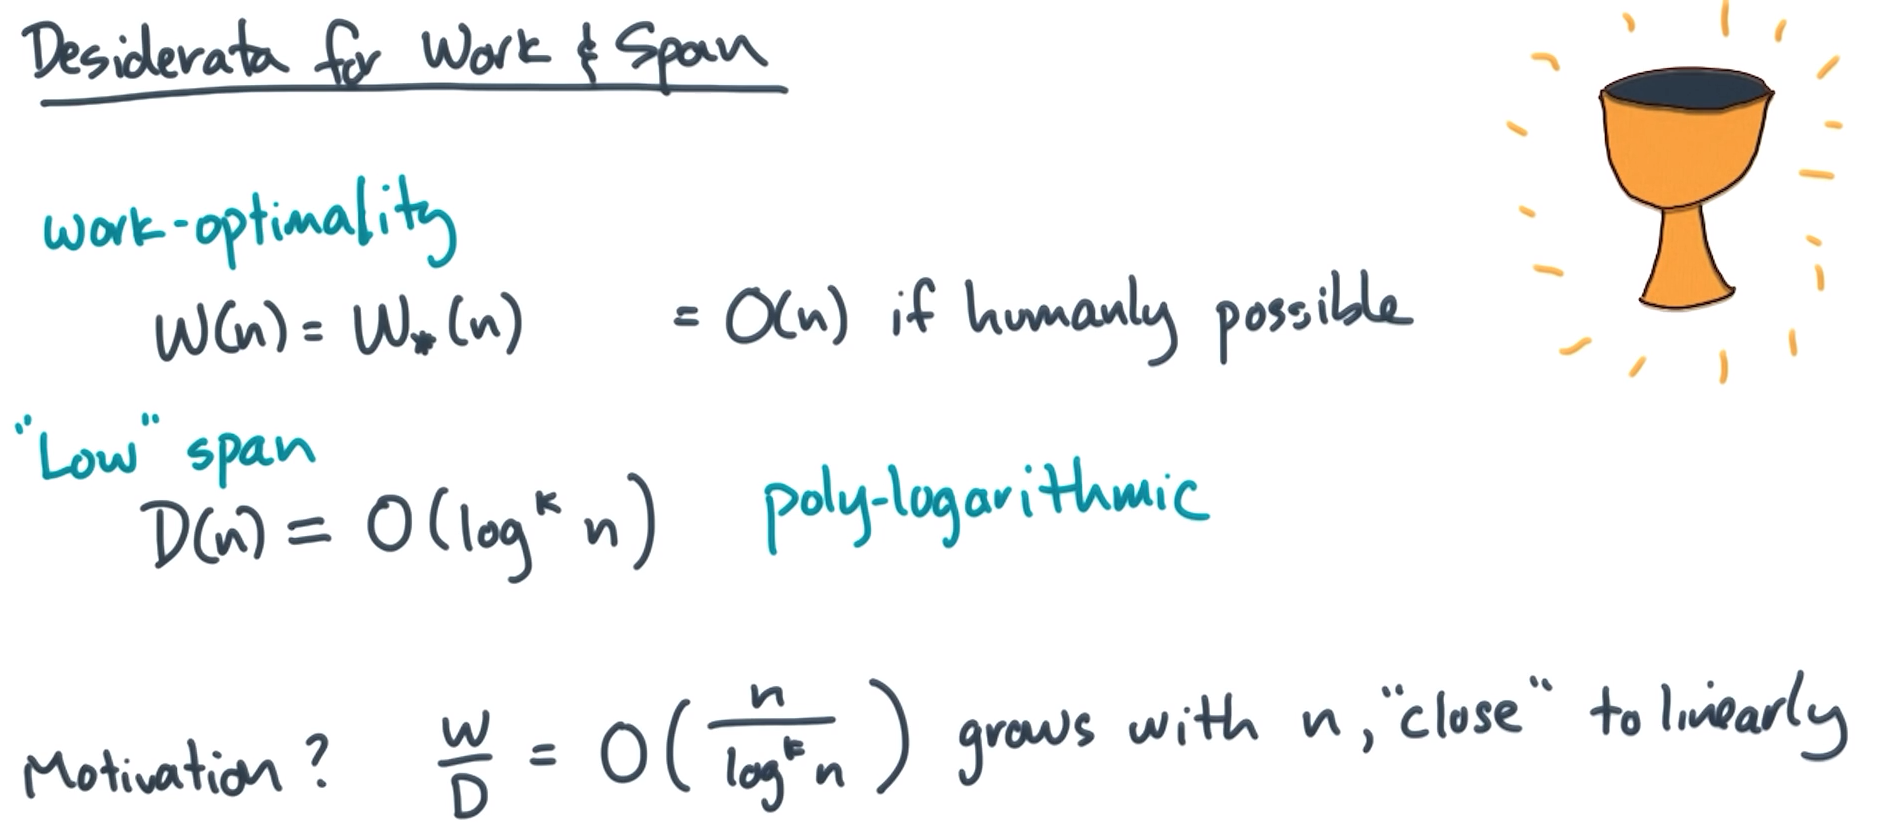 Desiderata for Work & Span
work-optimality
W(n) = W*(n) = O(n) if humanly possible
"Low" span
D(n) = O(log^k n) poly-logarithmic
Motivation? W/D = O(n/log^k n) grows with n, "close" to linearly